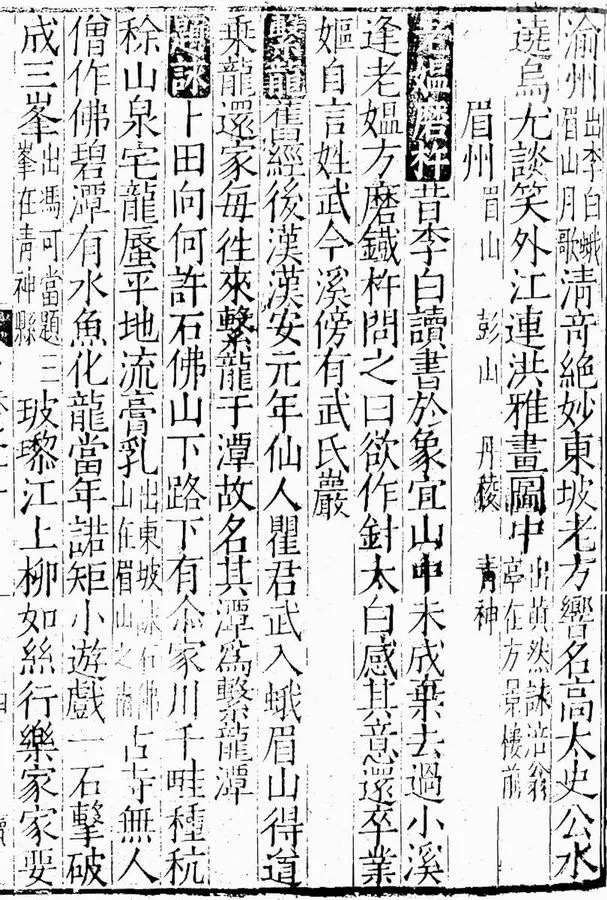 渝州出李白蛾眉山月歌清竒絶妙東坡老方響名髙太史公水
遶烏尤談笑外江連洪雅畫圖中出黄然詠涪翁亭在方景樓前
眉州眉山 彭山 丹稜 青神
老媼磨杵昔李白讀書於象宜山中未成棄去過小溪
逢老媼方磨鐵杵問之曰欲作針太白感其意還卒業
嫗自言姓武今溪傍有武氏巖
繫龍舊經後漢漢安元年仙人瞿君武入蛾眉山得道
乗龍還家每徃來繫龍于潭故名其潭爲繫龍潭
題詠上田向何許石佛山下路下有尒家川千畦種秔
稌山泉宅龍蜃平地流膏乳出東坡詠石佛山在眉山之南古寺無人
僧作佛碧潭有水魚化龍當年諾矩小遊戲一石擊破
成三峯出馮可當題三峯在青神縣玻瓈江上柳如絲行樂家家要